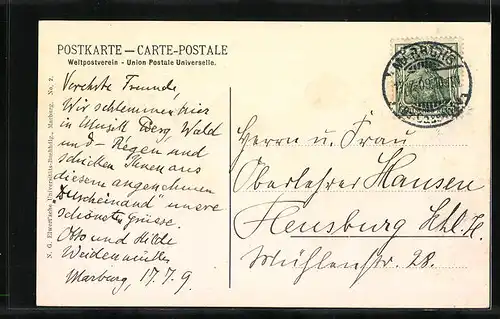 POSTKARTE — CARTE-POSTALE
Weltpostverein - Union Postale Universelle.
N. G. Elwert'sche Universitäts-Buchhdlg., Marburg. No. 2.
MARBURG
Verehrte Freunde,
Wir schlemmen hier
in Musik Berg, Wald
und - Regen und
schicken Ihnen aus
diesem angenehmen
"Durcheinand" unsere
schönsten Grüsse.
Otto und Hilde
Weidenmüller
Marburg, 17.7.9.
Herrn u. Frau
Oberlehrer Hansen
Flensburg Schl. H.
Mühlenstr. 28.